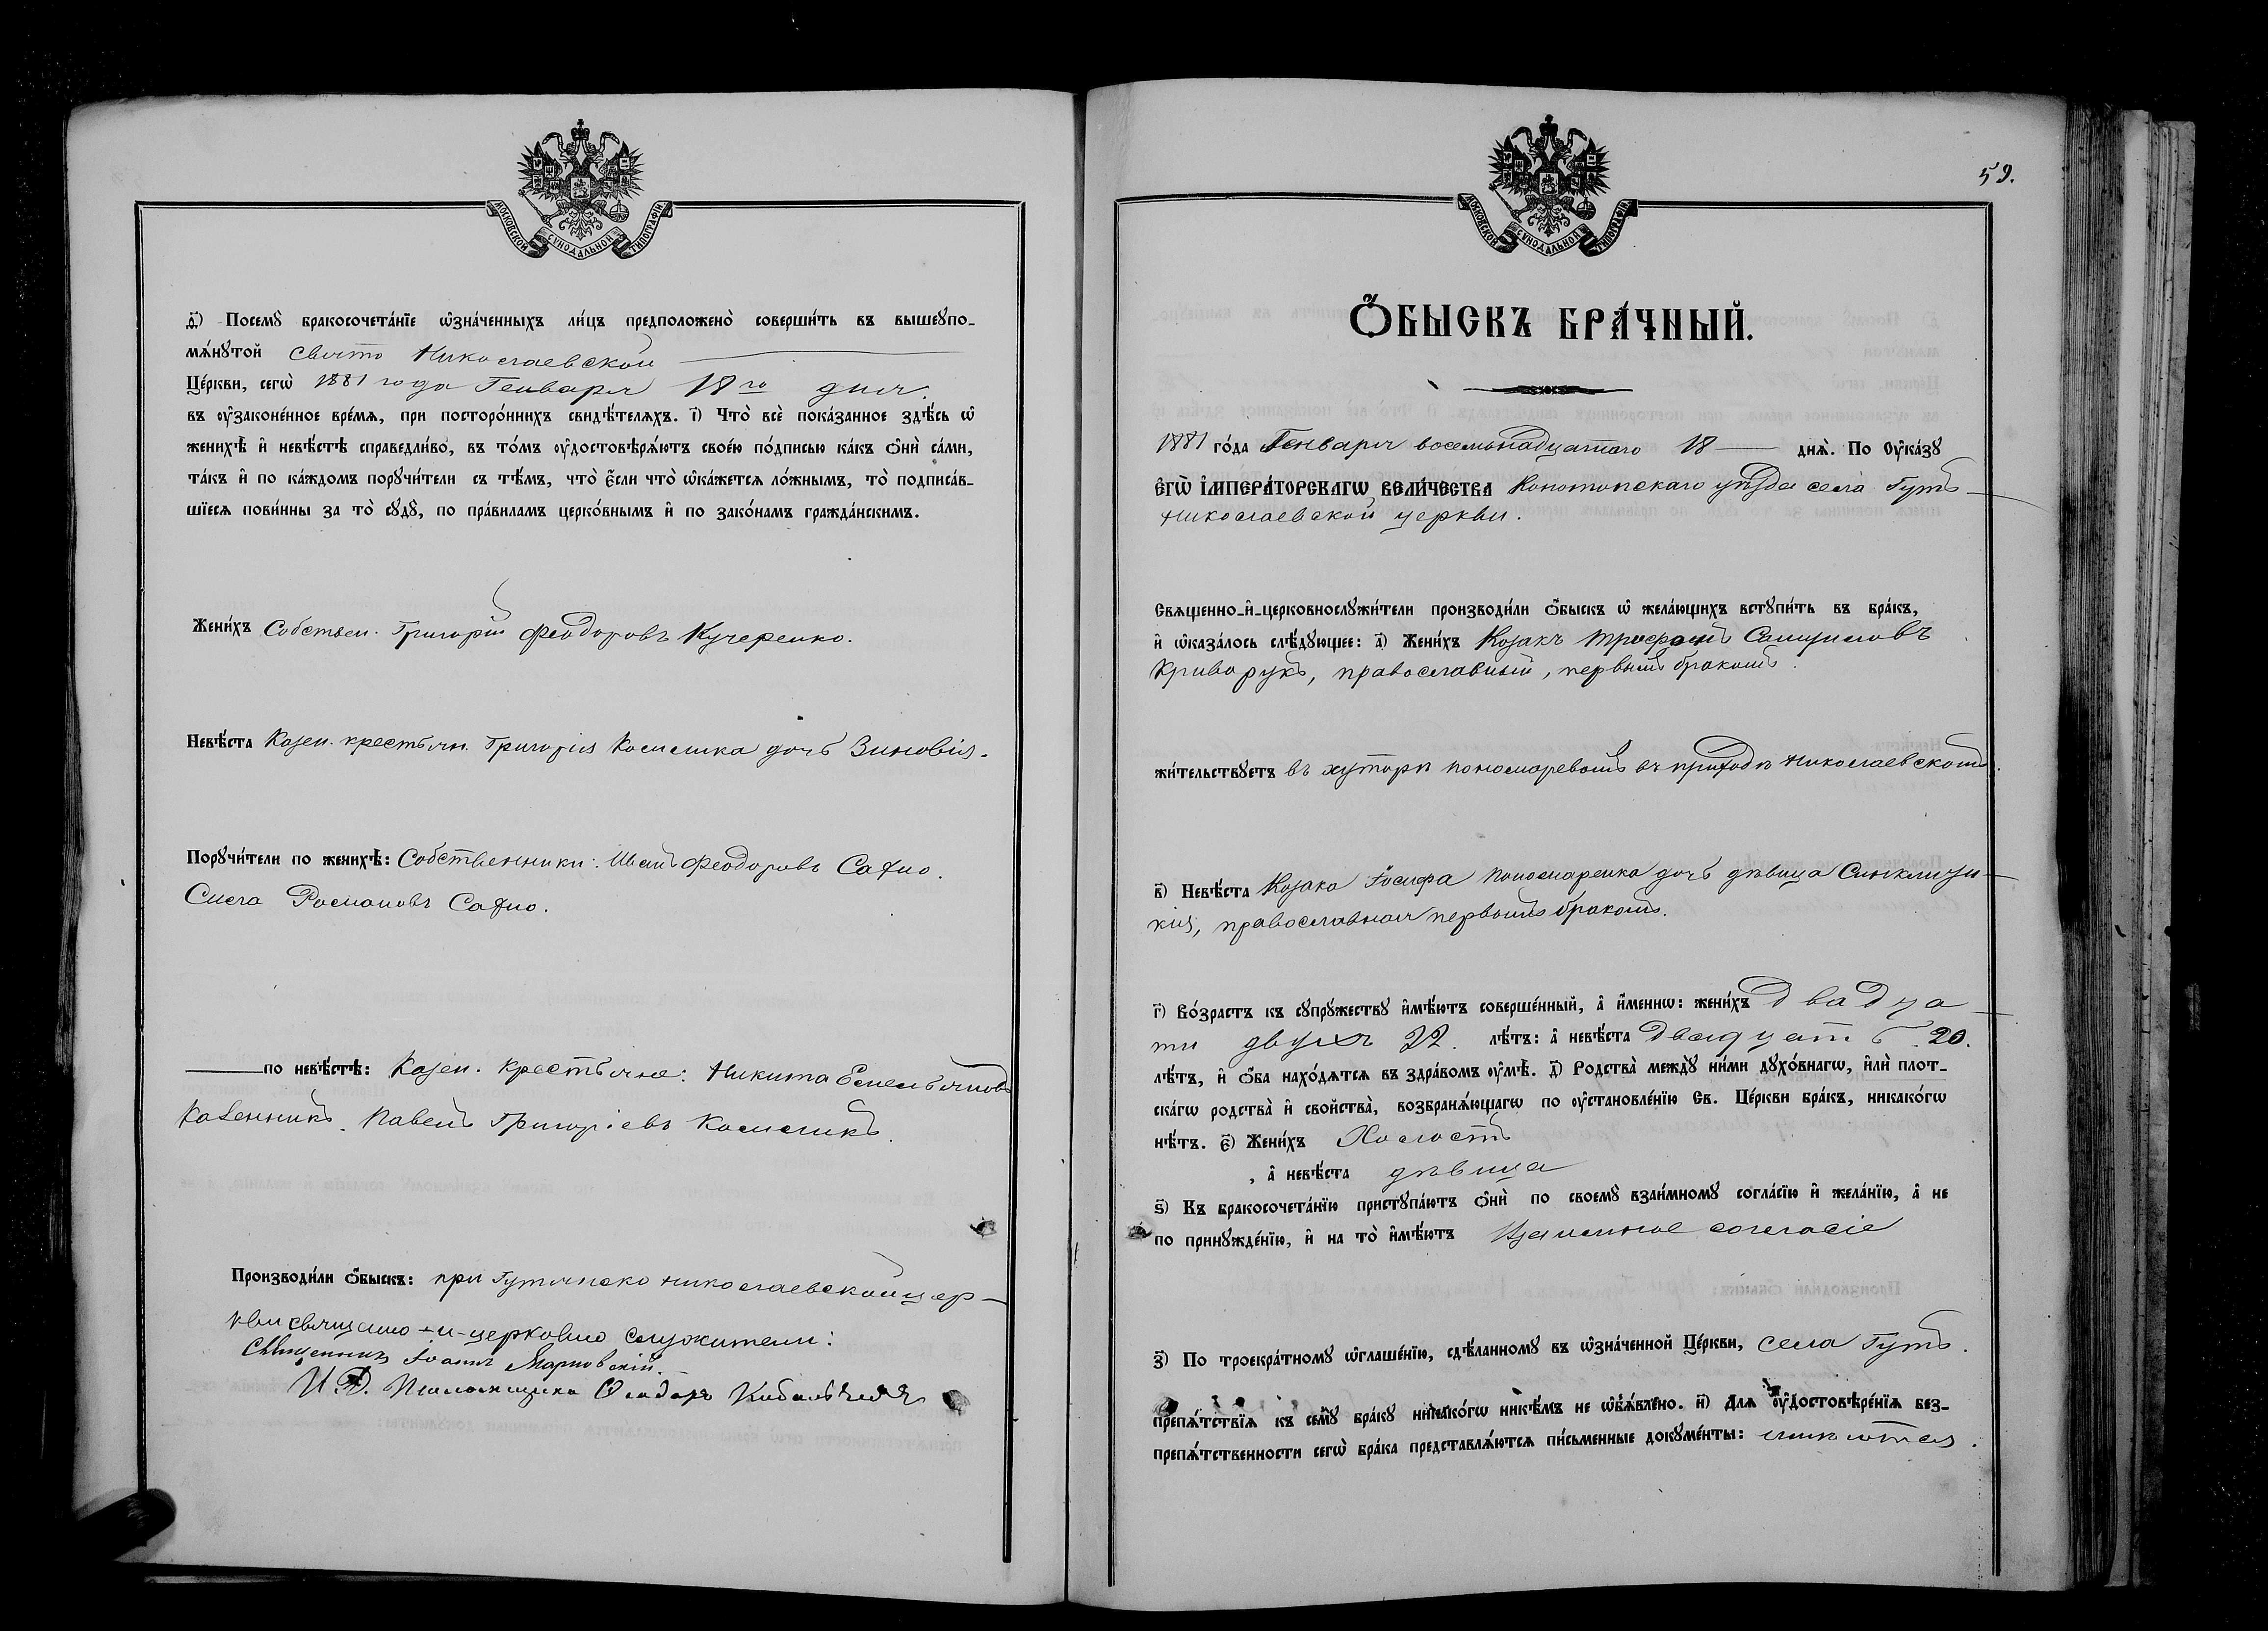 МОСКОВСКОЙ СѴНОДАЛЬНОЙ ТИПОГРАФІИ
д҃) Посемꙋ̀ бракосочета́нїе ѡ҆зна́ченныхъ ли́цъ предположено̀ соверши́ть въ вышеꙋпо-
мѧ́нꙋтой Свято Николаевской
Це́ркви, сегѡ̀ 1881 года Генваря 18го дня.
въ ᲂу҆законе́нное вре́мѧ, при посторо́ннихъ свидѣ́телѧхъ. і҃) Что̀ всѐ пока́занное здѣ́сь ѡ҆
женихѣ̀ и҆ невѣ́стѣ справедли́во, въ то́мъ ᲂу҆достовѣрѧ́ютъ свое́ю по́дписью ка́къ ѻ҆нѝ са́ми,
та́къ и҆ по ка́ждомъ порꙋчи́тели съ тѣ́мъ, что̀ є҆́сли что̀ ѡ҆ка́жется ло́жнымъ, то̀ подписа́в-
шїеся пови́нны за то̀ сꙋдꙋ̀, по пра́виламъ церко́внымъ и҆ по зако́намъ гражда́нскимъ.
Жени́хъ Собствен. Григорій Феодоровъ Кучеренко.
Невѣ́ста Казен. крестьян. Григорія Комлика дочь Зиновія.
Порꙋчи́тели по женихѣ̀: Собственники: Иванъ Феодоровъ Сахно.
Сила Романовъ Сахно.
по невѣ́стѣ: Казен. крестьяне: Никита Емельяновъ
Павелъ Григоріевъ
Производи́ли ѻ҆́быскъ: при Гутянско Николаевской цер-
кви священно-и-церковно служители:
Священникъ Іоаннъ
И. Д. Псаломщика Ѳеодоръ
59.
МОСКОВСКОЙ СѴНОДАЛЬНОЙ ТИПОГРАФІИ
Ѻ҆́БЫСКЪ БРА́ЧНЫЙ.
1881 го́да Генваря восемьнадцатого 18 днѧ̀. По Оу҆ка́зꙋ
Є҆гѡ̀ І҆мпера́торскагѡ Вели́чества Конотопскаго уѣзда села Гутъ
Николаевской церкви.
Свѧщенно-и҆-церковнослꙋжи́тели производи́ли ѻ҆́быскъ ѡ҆ жела́ющихъ встꙋпи́ть въ бра́къ,
и҆ ѡ҆каза́лось слѣ́дꙋющее: а҃) Жени́хъ Козакъ Трофимъ Самуиловъ
Криворукъ, православный, первымъ бракомъ.
жи́тельствꙋетъ въ хуторѣ Пономаревомъ въ приходѣ Николаевскомъ.
в҃) Невѣ́ста Козака Іосифа Пономаренка дочь дѣвица Синклити-
кія, православная первымъ бракомъ.
г҃) Во́зрастъ къ сꙋпрꙋ́жествꙋ и҆мѣ́ютъ соверше́нный, а҆ и҆́меннѡ: жени́хъ двадца
ти двухъ 22. лѣ́тъ: а҆ невѣ́ста двадцать 20.
лѣ́тъ, и҆ ѻ҆́ба нахо́дѧтся въ здра́вомъ ᲂу҆мѣ̀. д҃) Родства̀ междꙋ̀ ни́ми дꙋхо́внагѡ, и҆лѝ плот-
ска́гѡ родства̀ и҆ свойства̀, возбранѧ́ющагѡ по ᲂу҆становле́нїю Св. Це́ркви бра́къ, никако́гѡ
нѣ́тъ. є҃) Жени́хъ Холостъ
, а҆ невѣ́ста дѣвица
ѕ҃) Къ бракосочета́нїю пристꙋпа́ютъ ѻ҆нѝ по своемꙋ̀ взаи́мномꙋ согла́сїю и҆ жела́нїю, а҆ не
по принꙋжде́нїю, и҆ на то̀ и҆мѣ́ютъ Взаимное согласіе
з҃) По троекра́тномꙋ ѡ҆глаше́нїю, сдѣ́ланномꙋ въ ѡ҆зна́ченной Це́ркви, села Гутъ.
препѧ́тствїѧ къ семꙋ̀ бра́кꙋ никако́гѡ никѣ́мъ не ѡ҆б̾ѧ́влено. и҃) Для ᲂу҆достовѣре́нїѧ без-
препѧ́тственности сегѡ̀ бра́ка представлѧ́ются пи́сьменные докꙋме́нты: имѣются.